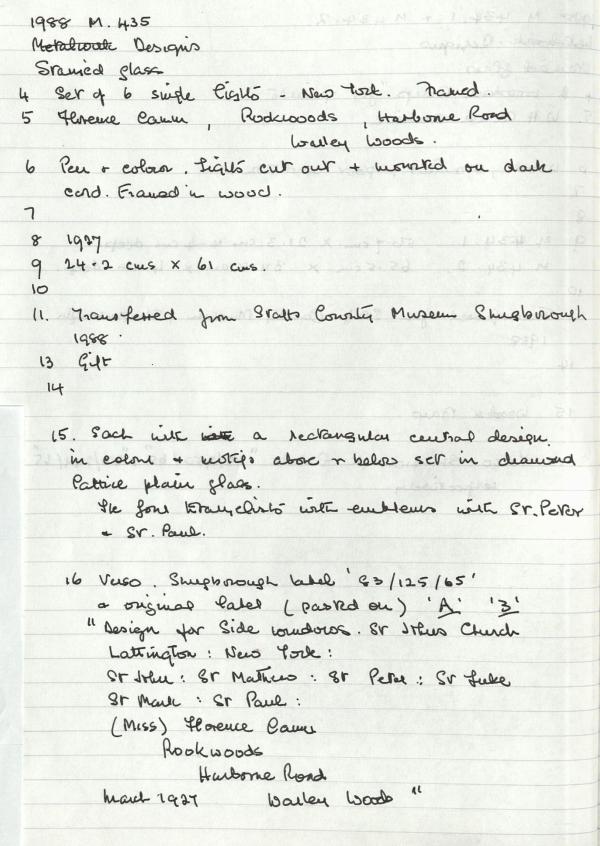 1988 M.435
Metalwork Designs
Stained glass
4 Set of 6 single lights - New York. Framed.
5 Florence Camm, Rookwoods, Harborne Road
Warley Woods.
6 Pen + colour. Lights cut out + mounted on dark
card. Framed in wood.
7
8 1927
9 24.2 cms x 61 cms.
10
11. Transferred from Staffs County Museum Shugborough
1988.
13 Gift
14
15. Each with a rectangular central design
in colour + motifs above + below set in diamond
lattice plain glass.
The four Evangelists with emblems with St. Peter
+ St. Paul.
16 Verso. Shugborough label '83/125/65'
+ original label (pasted on) 'A' '3'
"Design for Side windows. St Johns Church
Lattington: New York:
St John: St Mathew: St Peter: St Luke
St Mark: St Paul:
(Miss) Florence Camm
Rookwoods
Harborne Road
March 1927 Warley Woods"